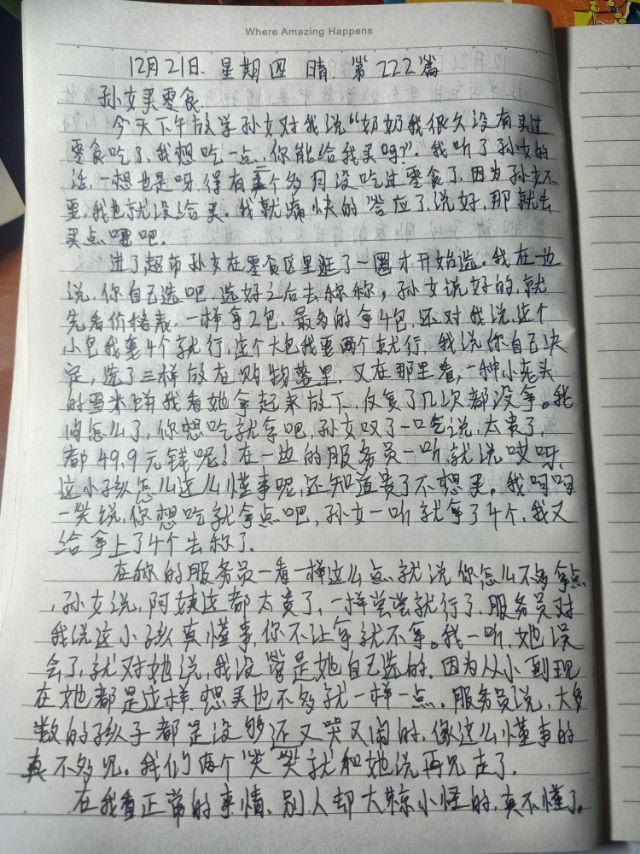 Where Amazing Happens
12月21日. 星期四 晴. 第222篇
孙女买零食.
今天下午放学孙女对我说"奶奶我很久没有买过
零食吃了,我想吃一点,你能给我买吗?". 我听了孙女的
话,一想也是呀,得有 个多月没吃过零食了,因为孙女不
要,我也就没给买。我就痛快的答应了,说好,那就去
买点 吧.
进了超市孙女在零食区里逛了一圈才开始选。我在一边
说,你自己选吧,选好之后去称称,孙女说好的,就
先看价格表,一样拿2包,最多的拿4包,还对我说,这个
小包我要4个就行,这个大包我要两个就行,我说你自己决
定,选了三样放在购物篮里,又在那里看,一种小老头
的 米饼我看她拿起来放下,反复了几次都没拿。我
问怎么了,你想吃就拿吧,孙女叹了一口气说,太贵了,
都49.9元钱呢!在一边的服务员一听就说哎呀,
这小孩怎么这么懂事呢,还知道贵了不想买。我呵呵
一笑说,你想吃就拿点吧,孙女一听就拿了4个,我又
给拿上了4个去称了.
在称的服务员一看一样这么点,就说,你怎么不多拿点
,孙女说,阿姨这都太贵了,一样尝尝就行了.服务员对
我说这小孩真懂事,你不让拿就不拿。我一听,她误
会了,就对她说,我没管是她自己选的.因为从小到现
在她都是这样.想买也不多就一样一点。服务员说,大多
数的孩子都是没够还又哭又闹的,像这么懂事的
真不多见。我们两个笑笑就和她说再见走了.
在我看正常的事情,别人却大惊小怪的,真不懂了。